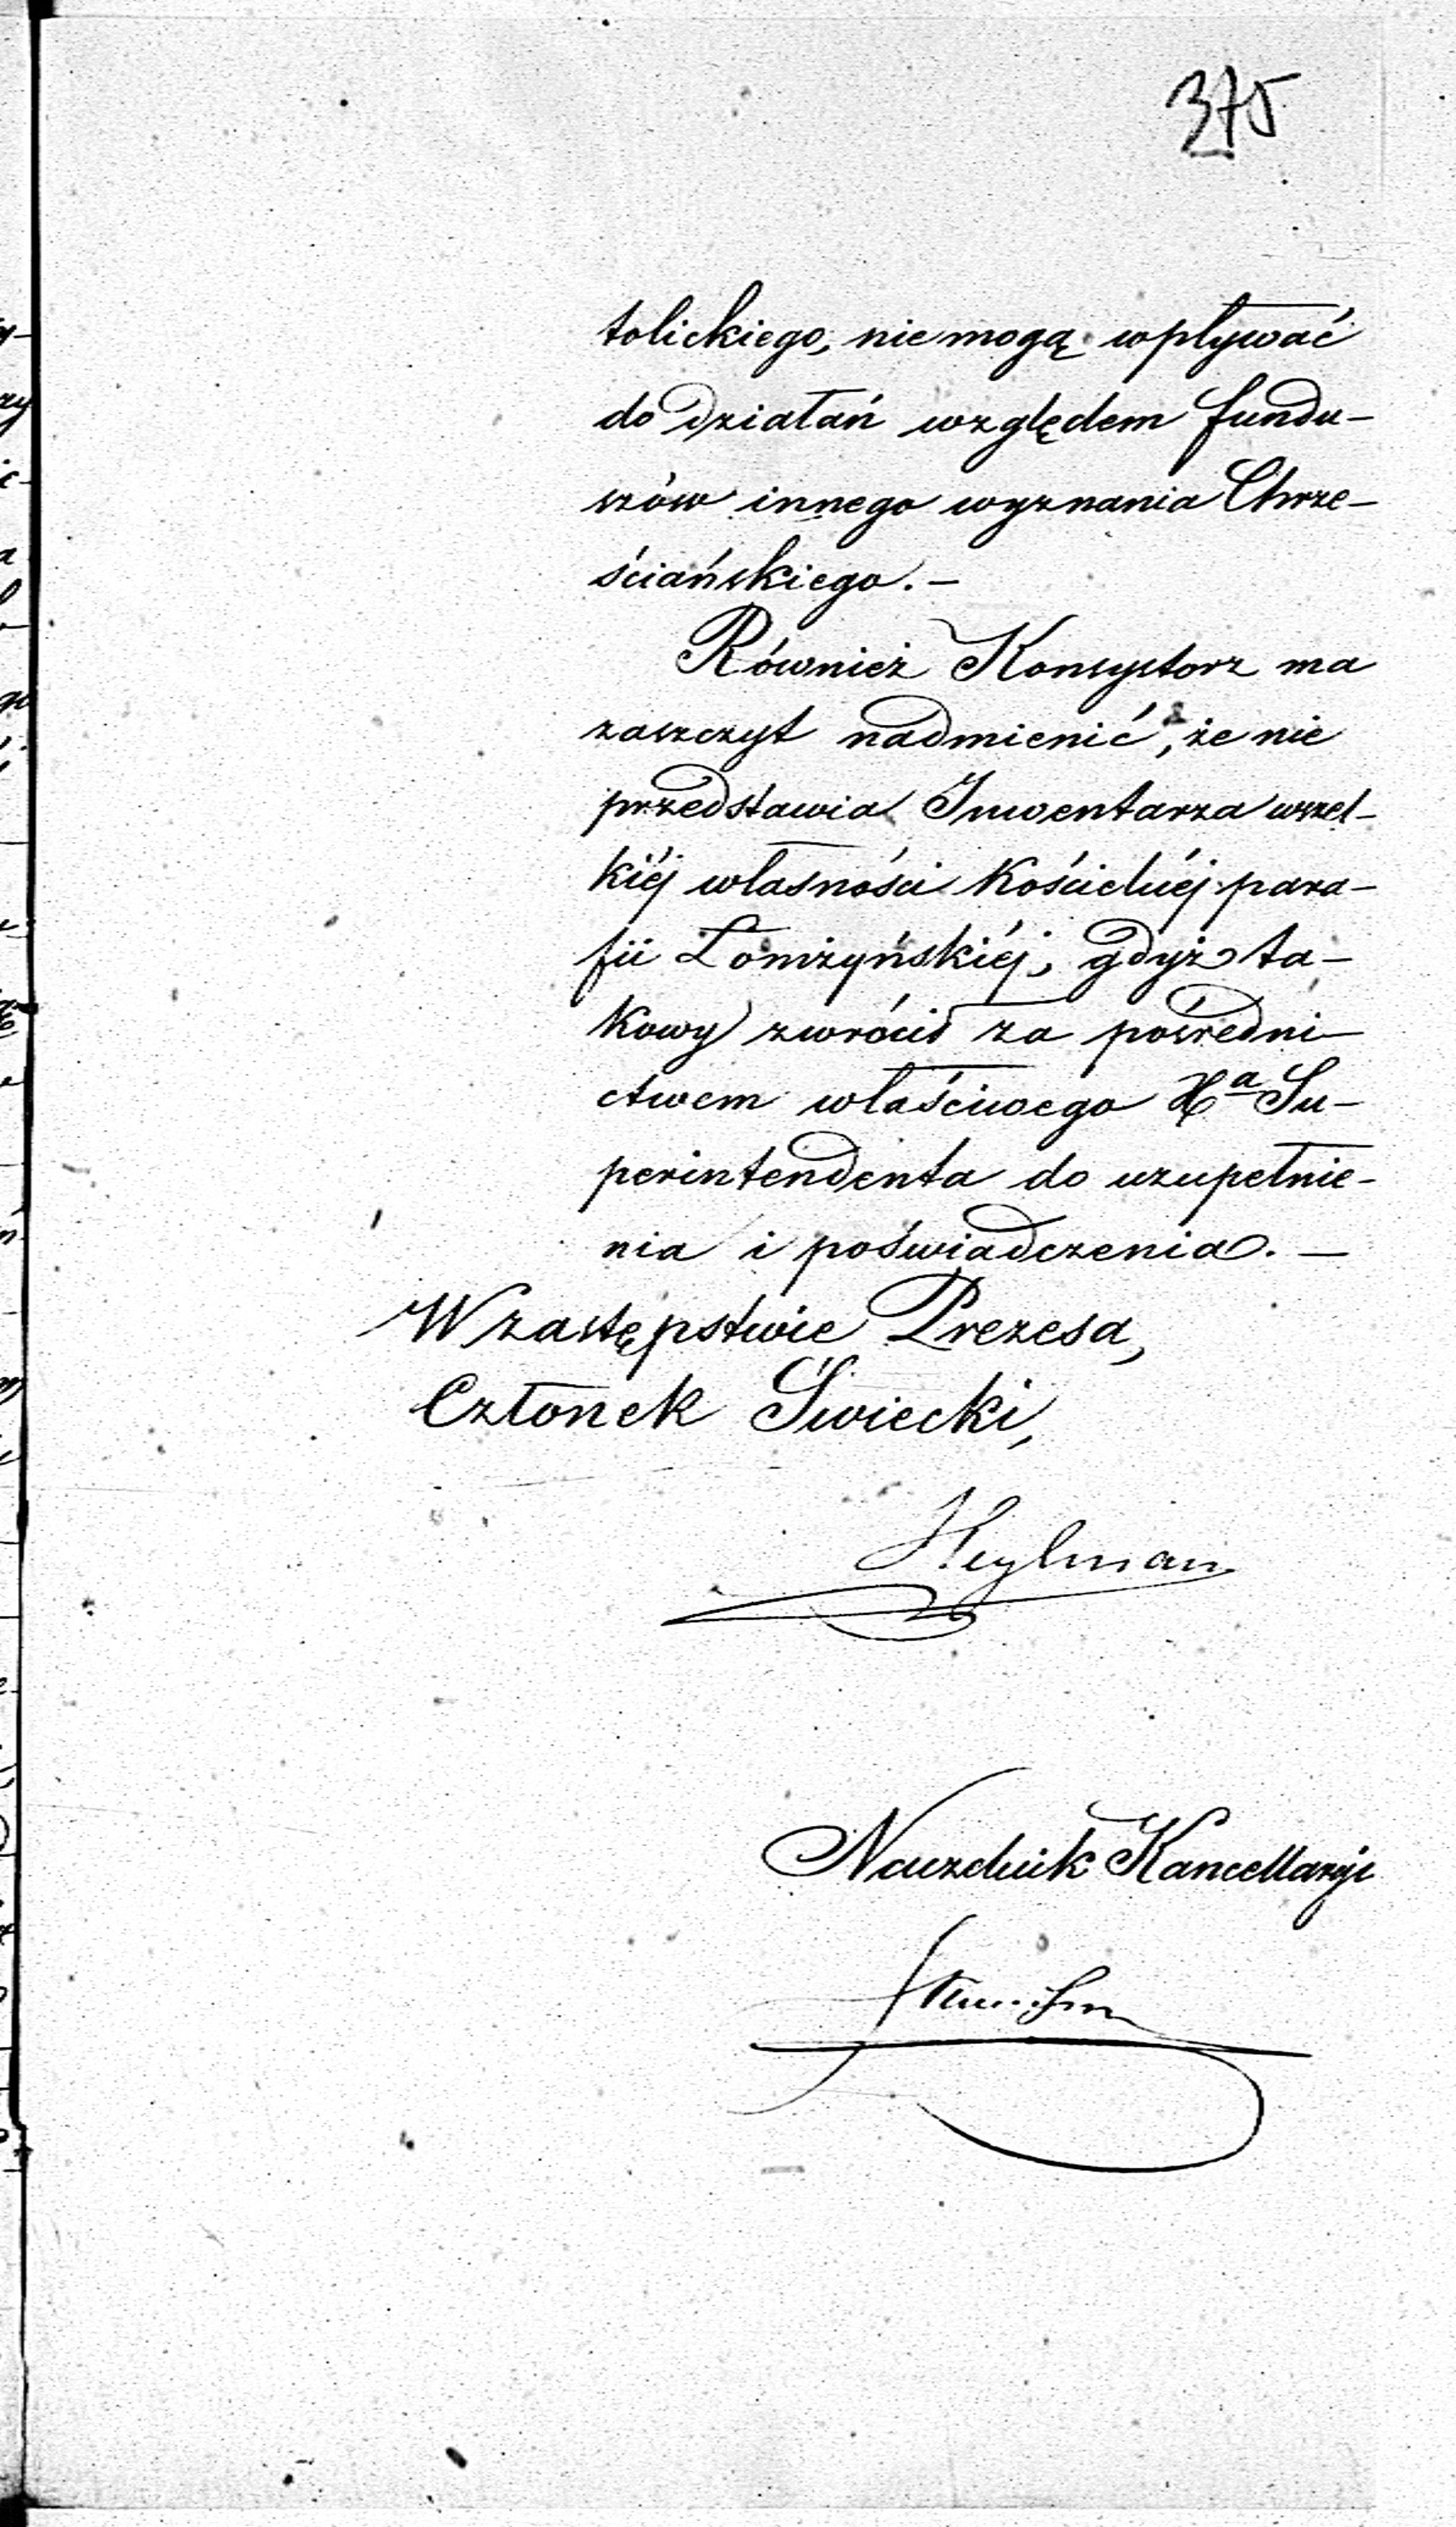 375
tolickiego, nie mogą wpływać
do działań względem fundu-
szów innego wyznania Chrze-
ściańskiego. -
Również Konsystorz ma
zaszczyt nadmienić, że nie
przedstawia Inwentarza wszel-
kiéj własności Kościelnéj para-
fii Łomżyńskiéj, gdyż ta-
kowy zwrócił za pośredni-
ctwem właściwego Xa Su-
perintendenta do uzupełnie-
nia i poświadczenia. -
W zastępstwie Prezesa,
Członek Świecki,
Heylman
Naczelnik Kancellaryi